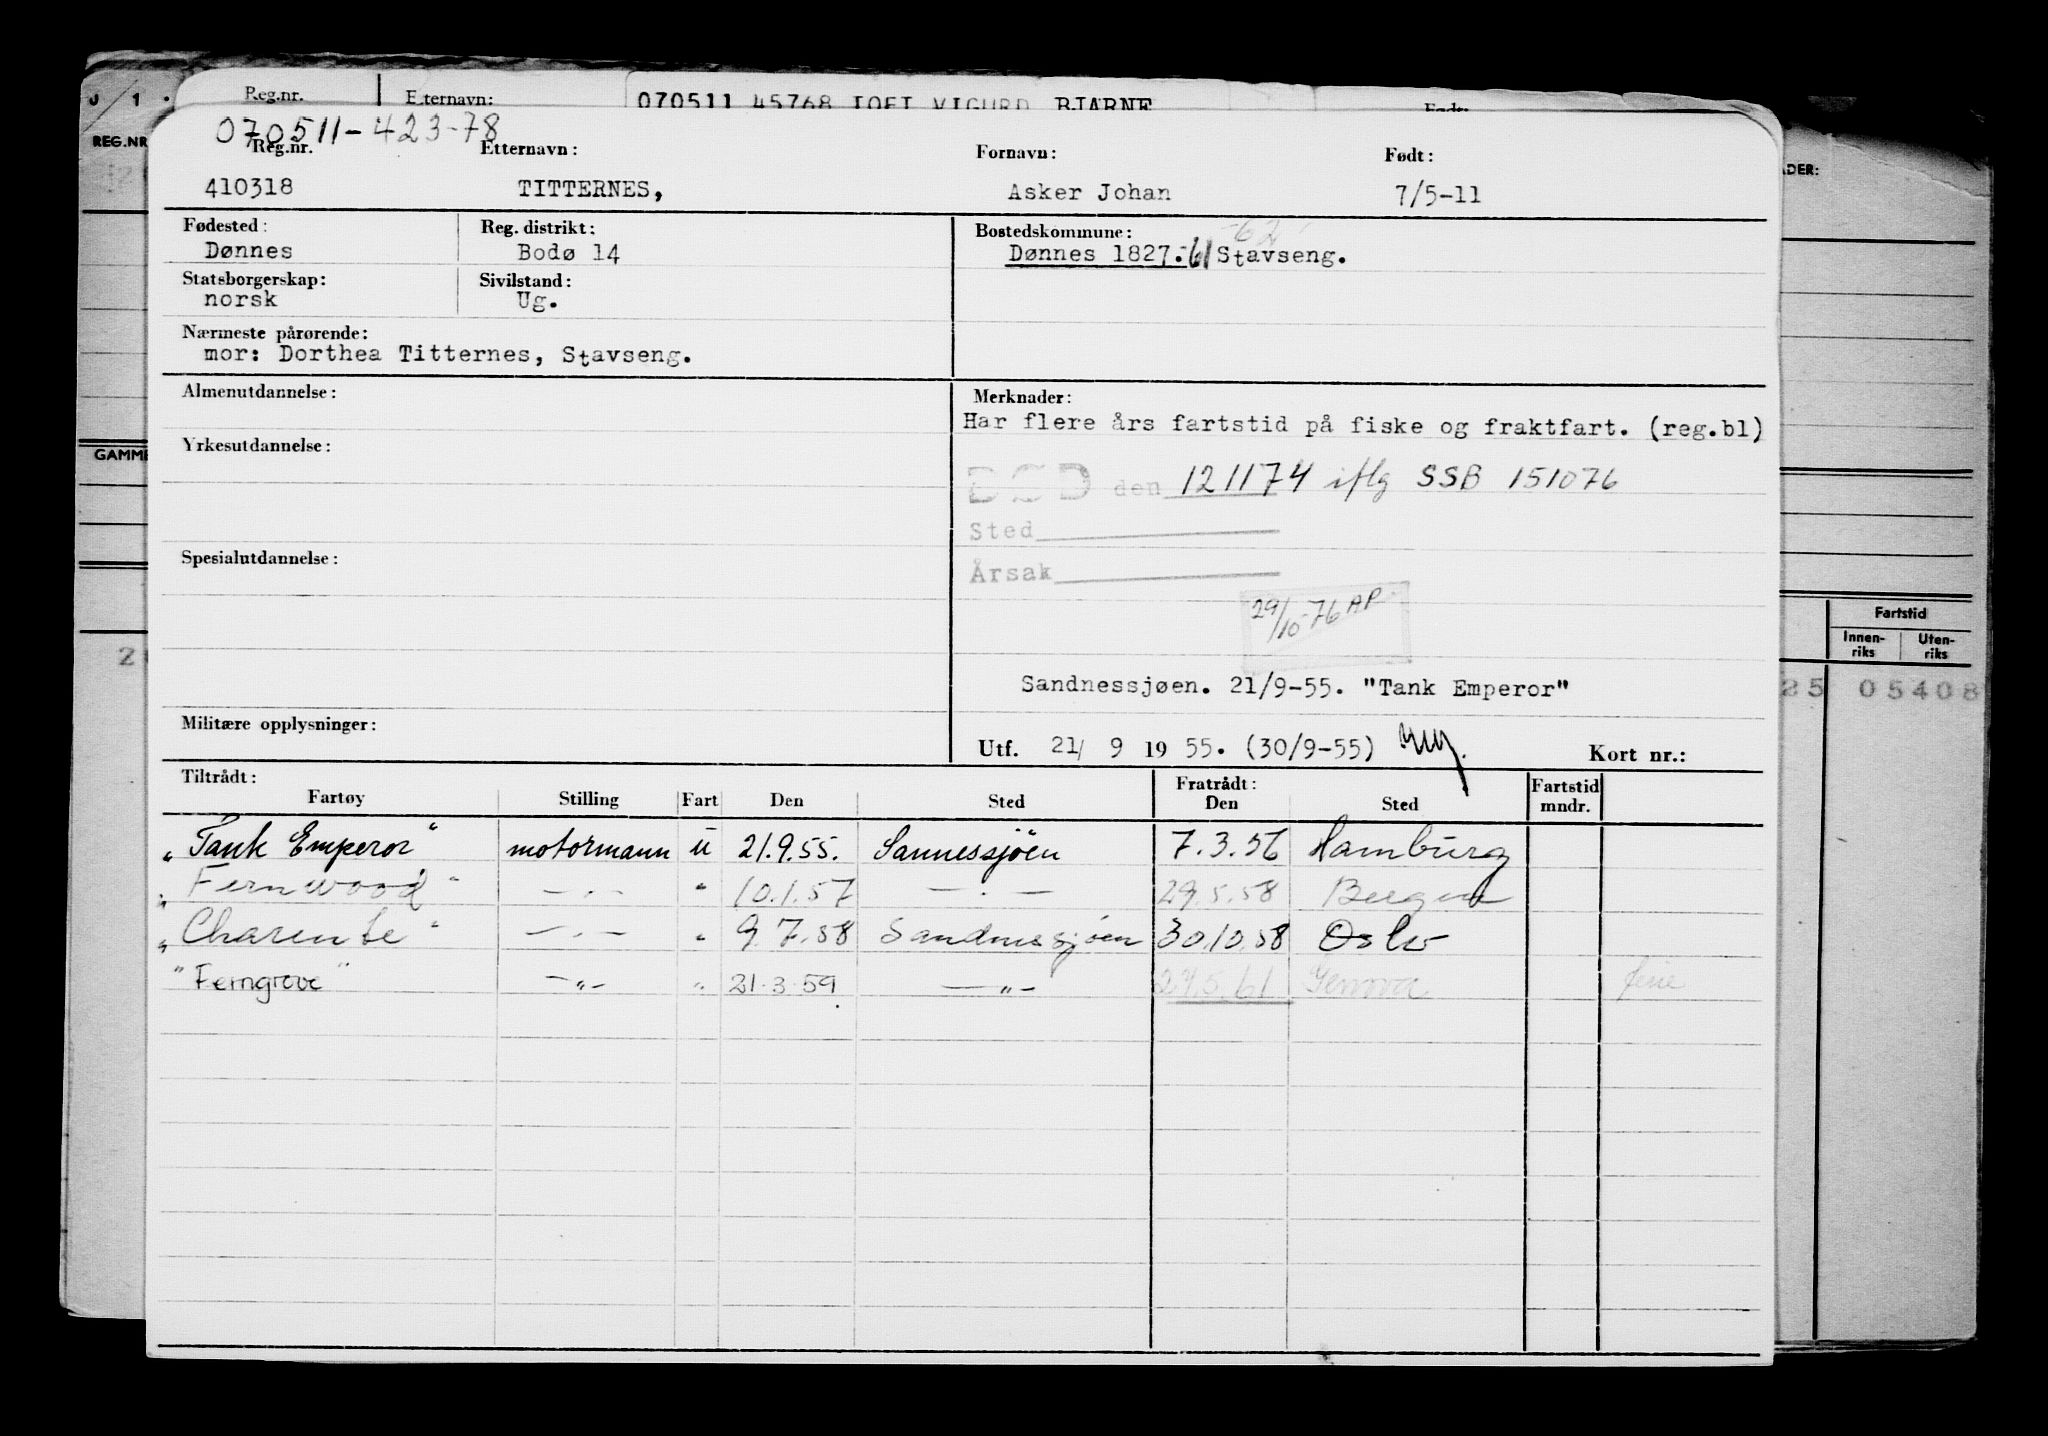 J 1.
Reg.nr. Etternavn: 070511 45768 BJARNE Født:
REG.NR
070511-423-78
Reg.nr. Etternavn: Fornavn: Født:
410318 TITTERNES, Asker Johan 7/5-11
Fødested: Reg. distrikt: Bostedskommune: -62
Dønnes Bodø 14 Dønnes 1827.-61 Stavseng.
Statsborgerskap: Sivilstand:
norsk Ug.
Nærmeste pårørende:
mor: Dorthea Titternes, Stavseng.
Almenutdannelse: Merknader:
Har flere års fartstid på fiske og fraktfart. (reg.bl)
Yrkesutdannelse:
DØD den 121174 iflg SSB 151076
Sted
Spesialutdannelse:
Årsak
29/10-76 AP
Sandnessjøen. 21/9-55. "Tank Emperor"
Militære opplysninger:
Utf. 21/ 9 19 55. (30/9-55) Kort nr.:
Tiltrådt: Fratrådt: Fartstid
Fartøy Stilling Fart Den Sted Den Sted mndr.
"Tank Emperor" motormann u 21.9.55. Sannessjöen 7.3.56 Hamburg
"Fernwood" —〃— 〃 10.1.57 —〃— 29.5.58 Bergen
"Charente" —〃— 〃 9.7.58 Sandnessjöen 30.10.58 Oslo
"Ferngrove" —〃— 〃 21.3.59 —〃— 29.5.61 Genova ferie
ADER:
GAMME
Fartstid
Innen-riks Uten-riks
2
25 05408